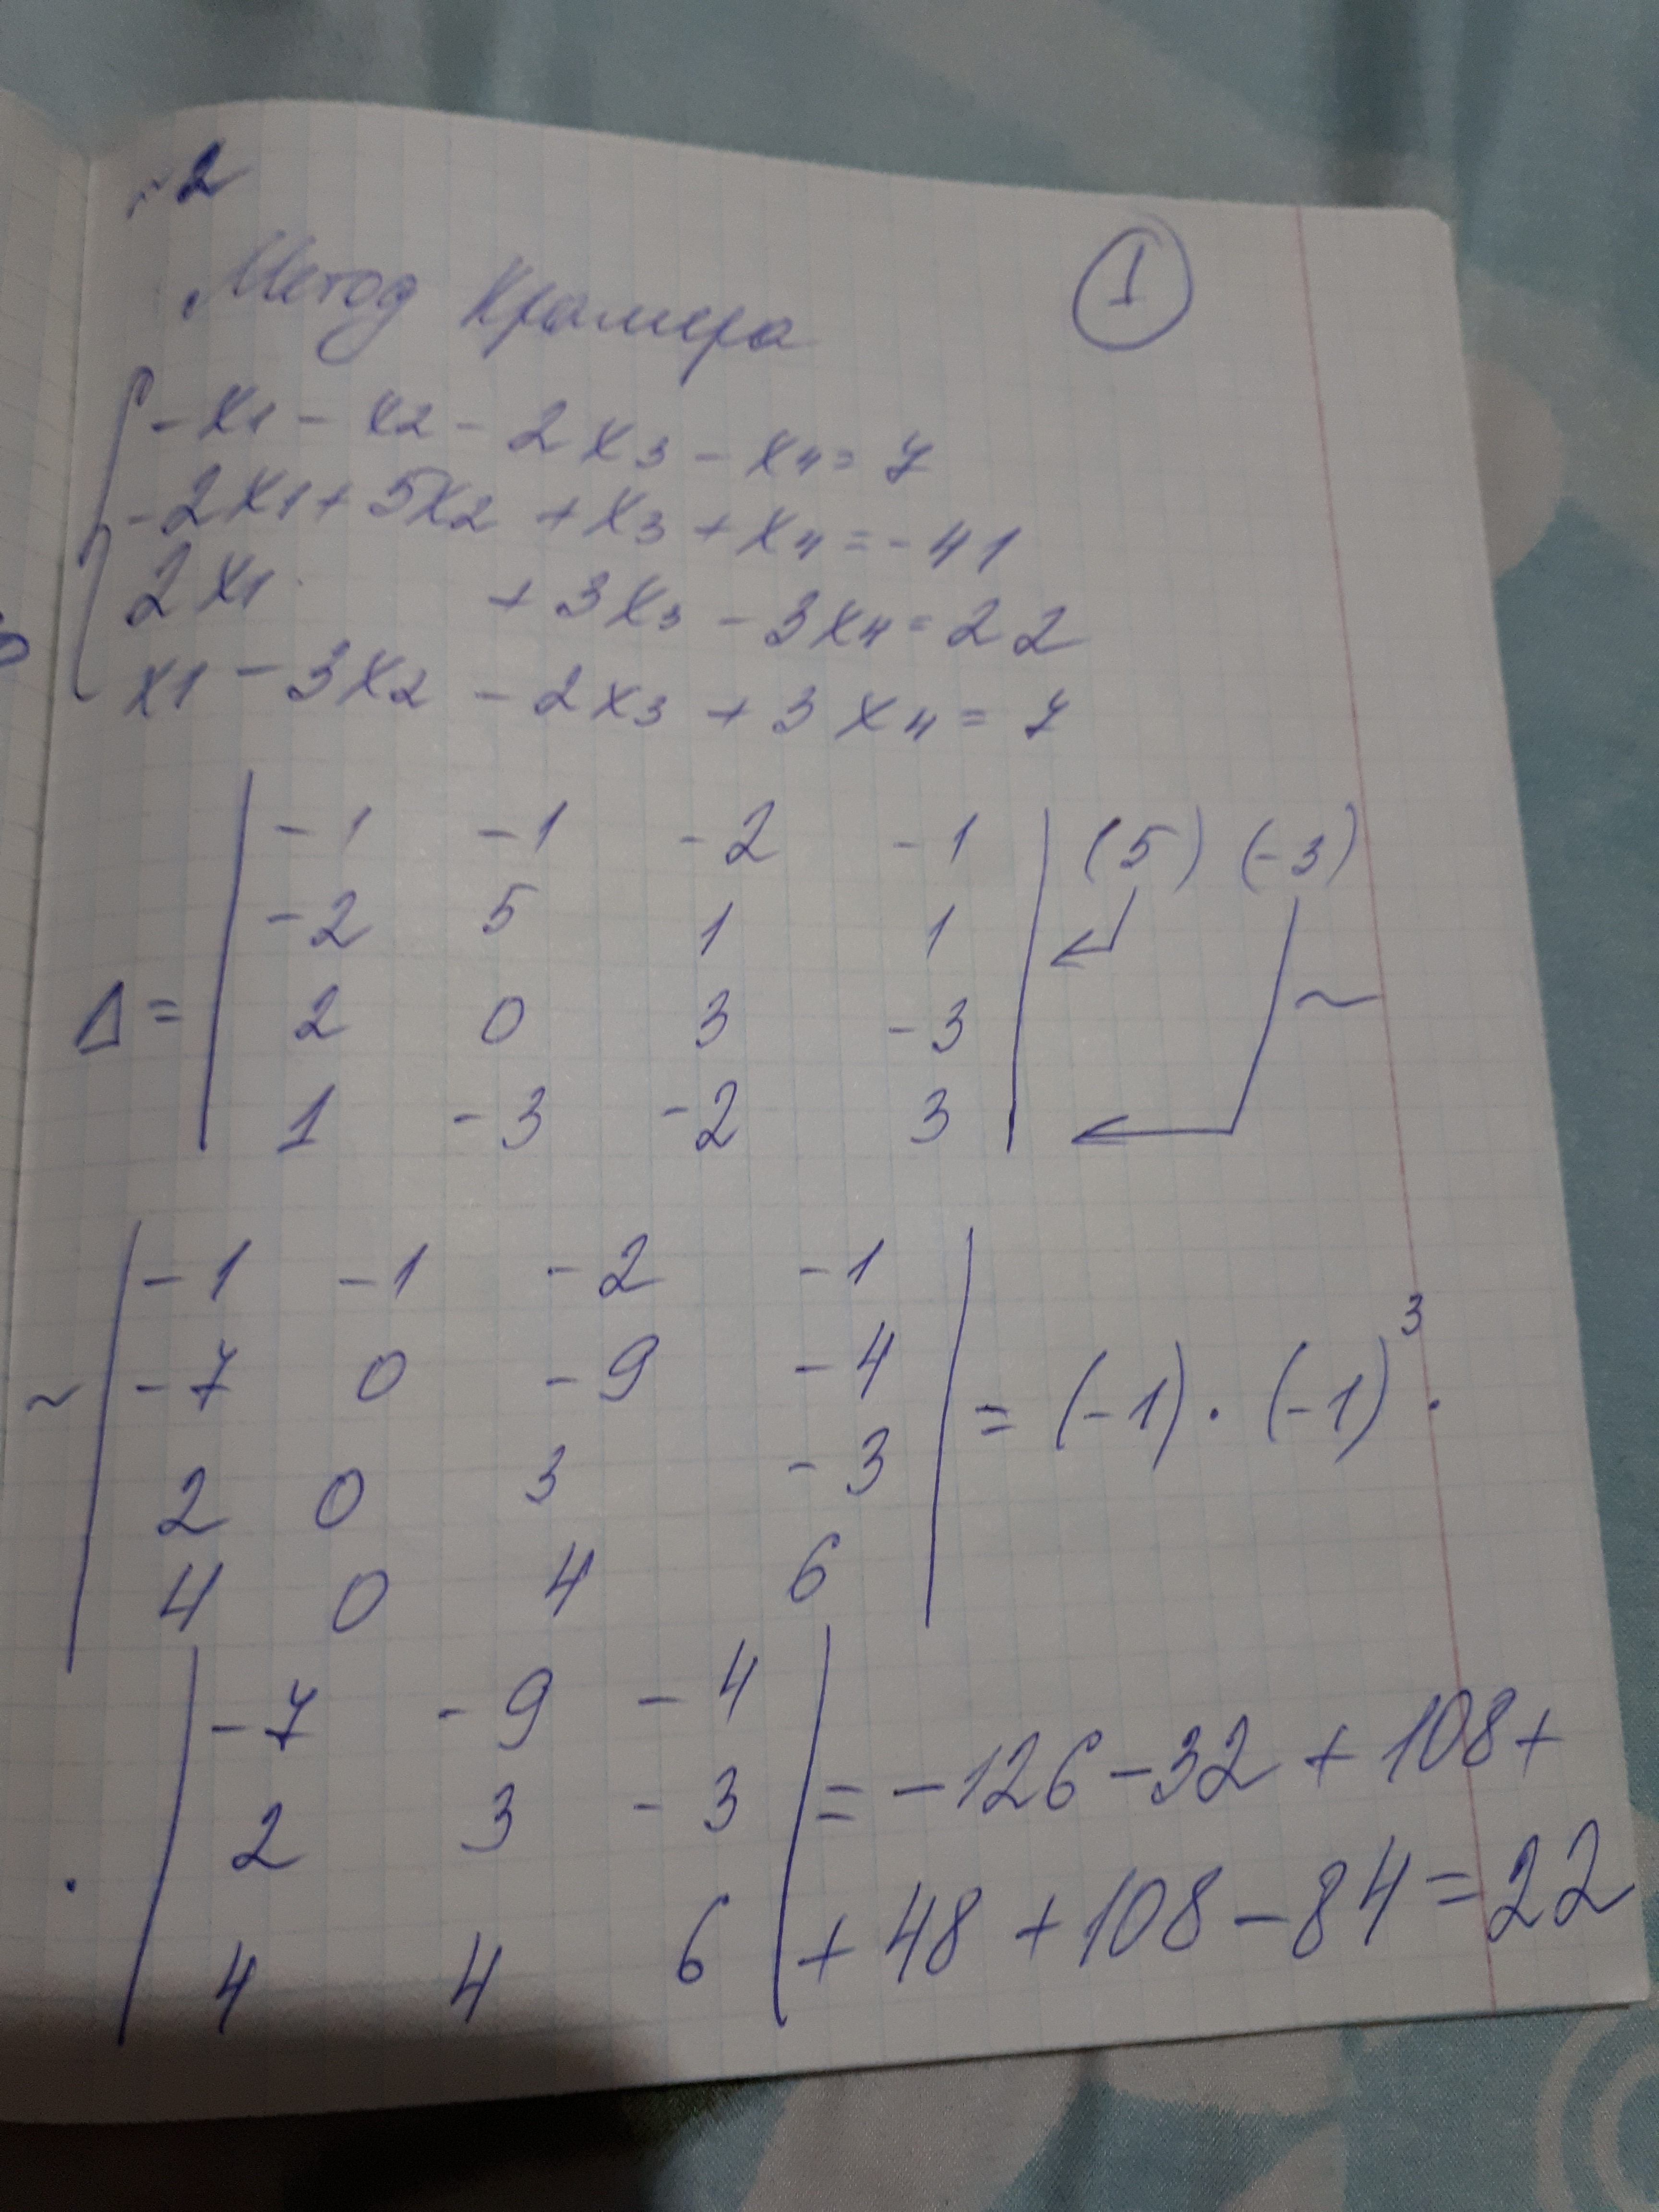 2
Метод Крамера
1
-x1 - x2 - 2x3 - x4 = 7
-2x1 + 5x2 + x3 + x4 = -41
2x1 + 3x3 - 3x4 = 22
x1 - 3x2 - 2x3 + 3x4 = 7
-1 -1 -2 -1 (5) (-3)
-2 5 1 1
Δ = 2 0 3 -3 ~
1 -3 -2 3
-1 -1 -2 -1
~ -7 0 -9 -4 = (-1) · (-1)³ ·
2 0 3 -3
4 0 4 6
-7 -9 -4
· 2 3 -3 = -126 - 32 + 108 +
4 4 6 + 48 + 108 - 84 = 22